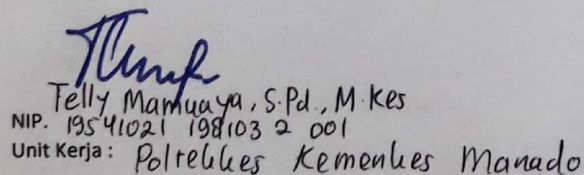 Telly Mamuaya, S.Pd., M.Kes
NIP. 19541021 198103 2 001
Unit Kerja : Poltekkes Kemenkes Manado